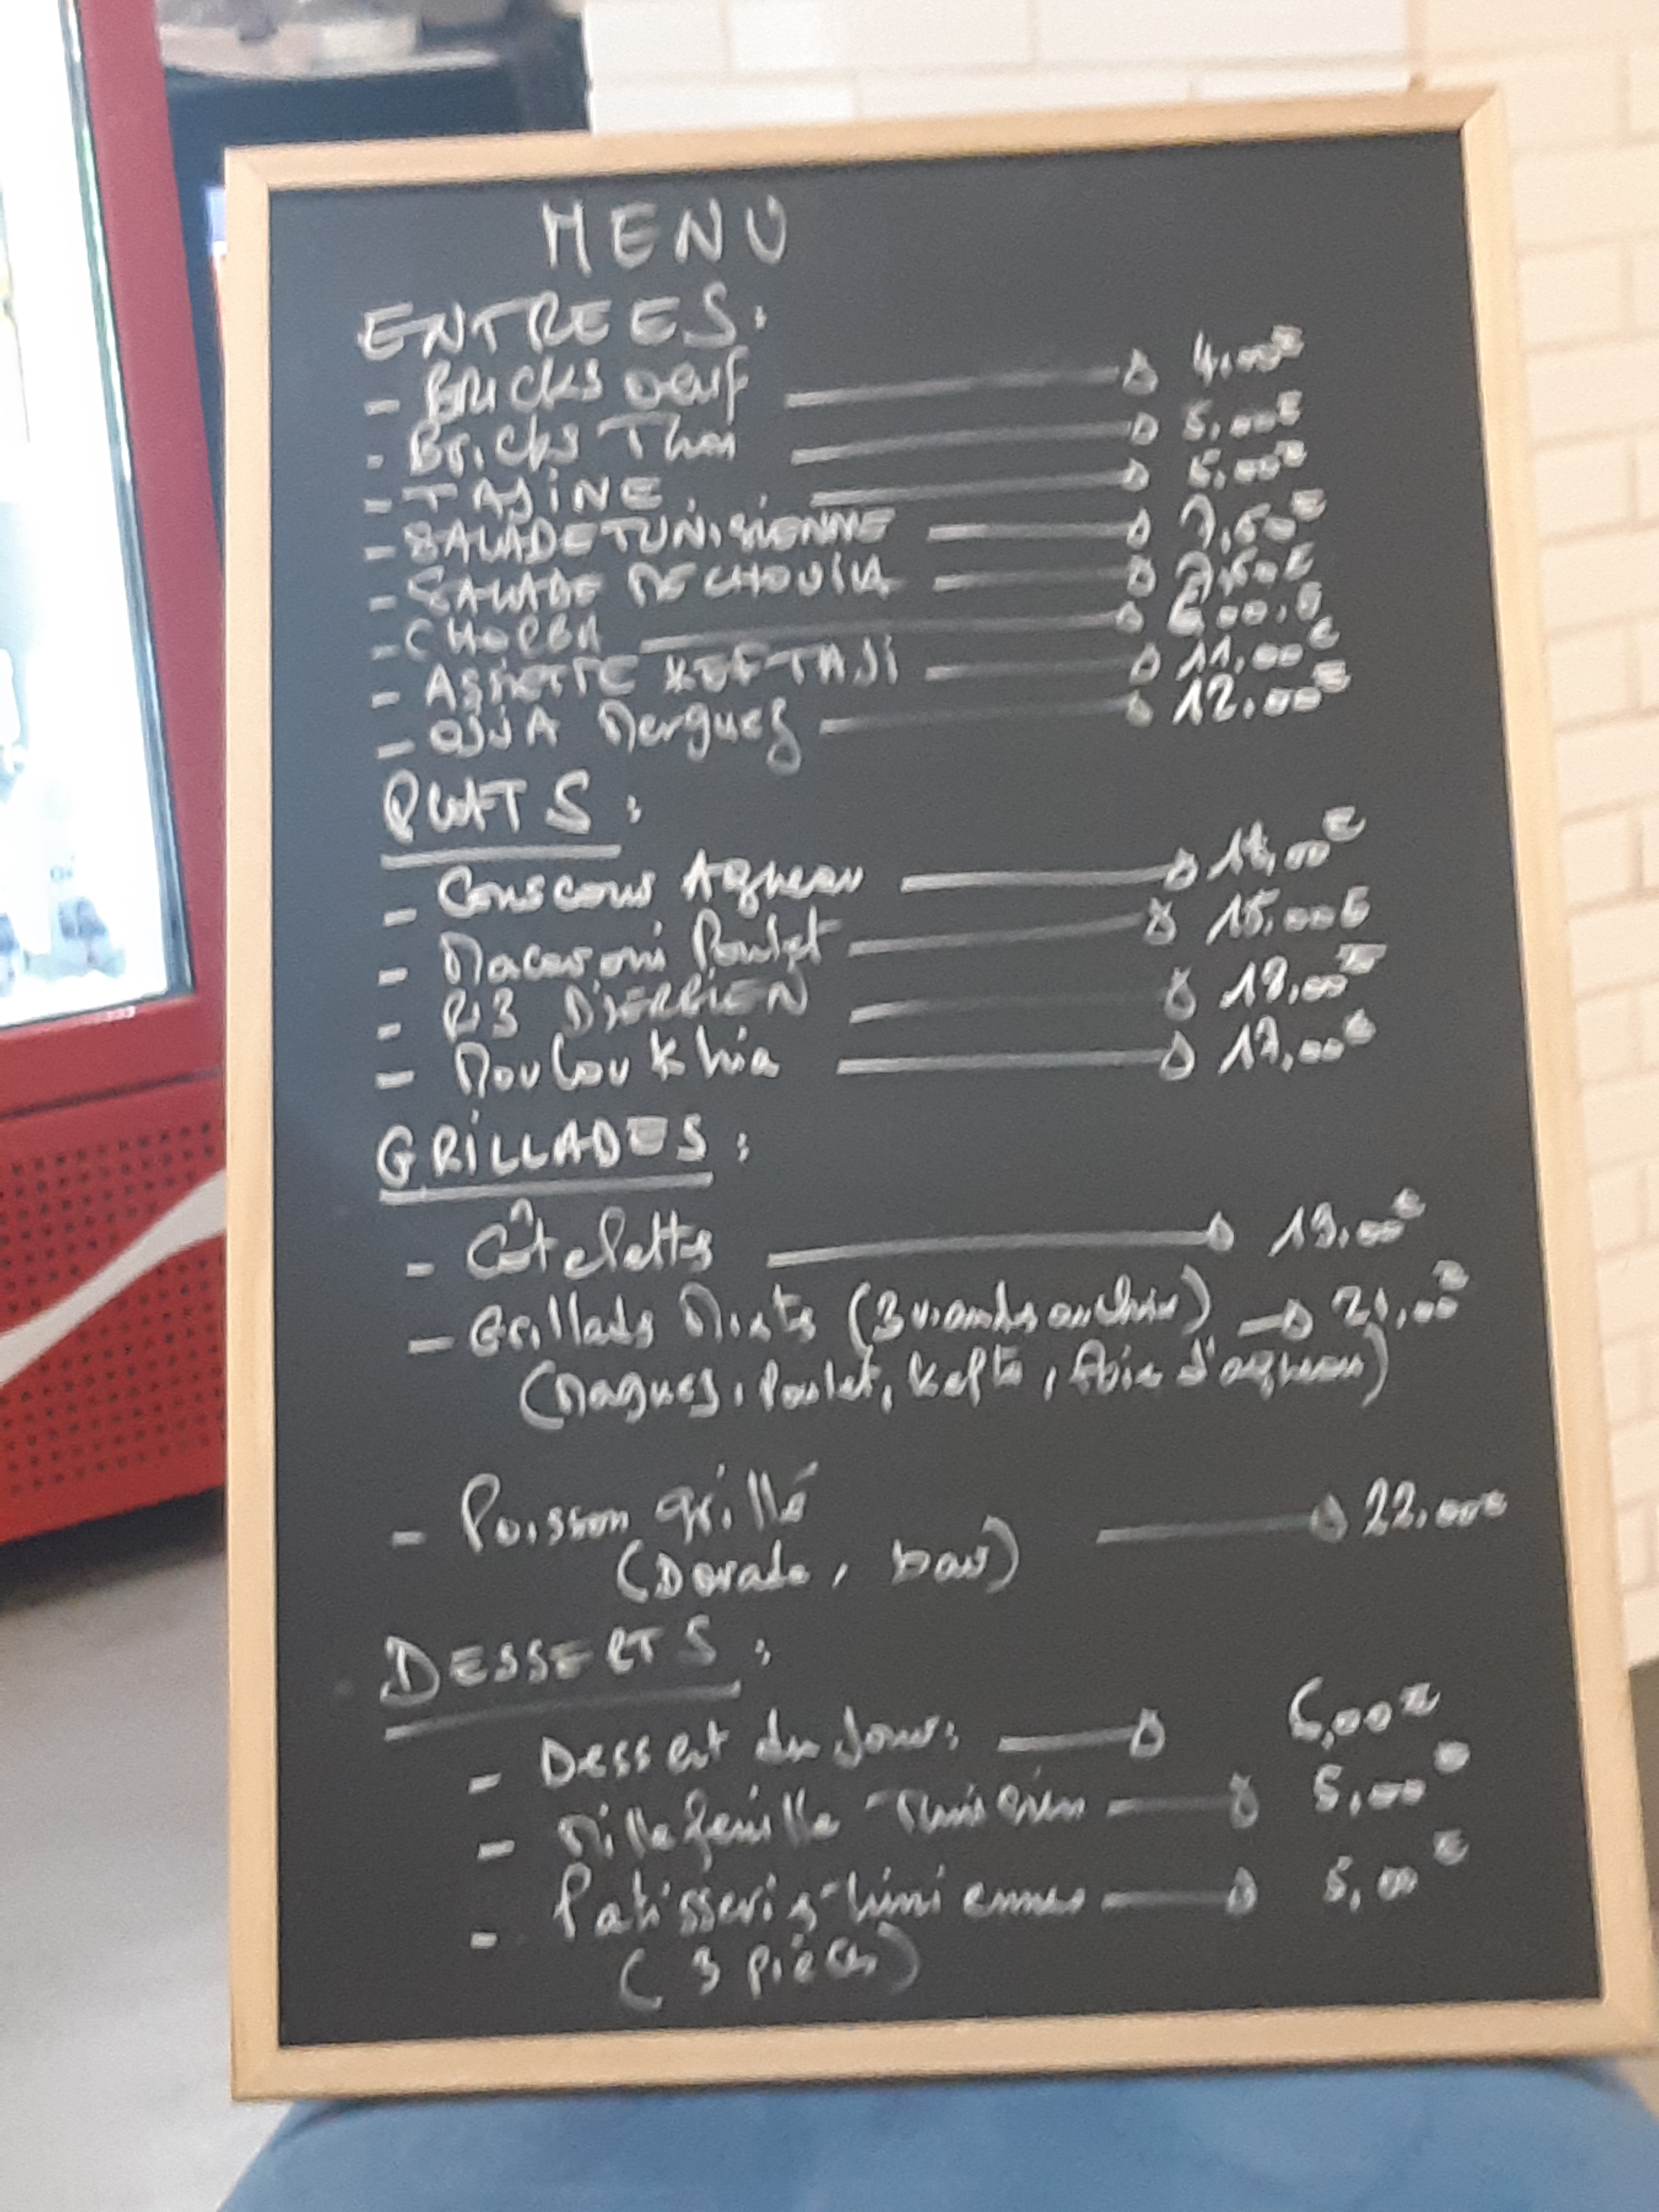 MENU
ENTREES:
- Bricks oeuf 4,00€
- Bricks Thon 5,00€
- TAJINE
- SALADE TUNISIENNE 7,50€
- SALADE MECHOUIA 7,50€
- CHORBA 6,00€
- ASSIETTE KEFTAJI 11,00€
- OJJA Merguez 12,00€
PLATS:
- Couscous Agneau
- Macaroni Poulet 15,00€
- RIZ DJERBIEN 18,00€
- Mouloukhia 17,00€
GRILLADES:
- Côtelettes 19,00€
- Grillades Mixtes (3 viandes au choix) 21,00€
(Merguez, Poulet, Kefta, Foie d'agneau)
- Poisson grillé
(Dorade, bar) 22,00€
DESSERTS:
- Dessert du Jour:
- Millefeuille Tunisien 5,00€
- Patisseries tunisiennes 5,00€
(3 pièces)